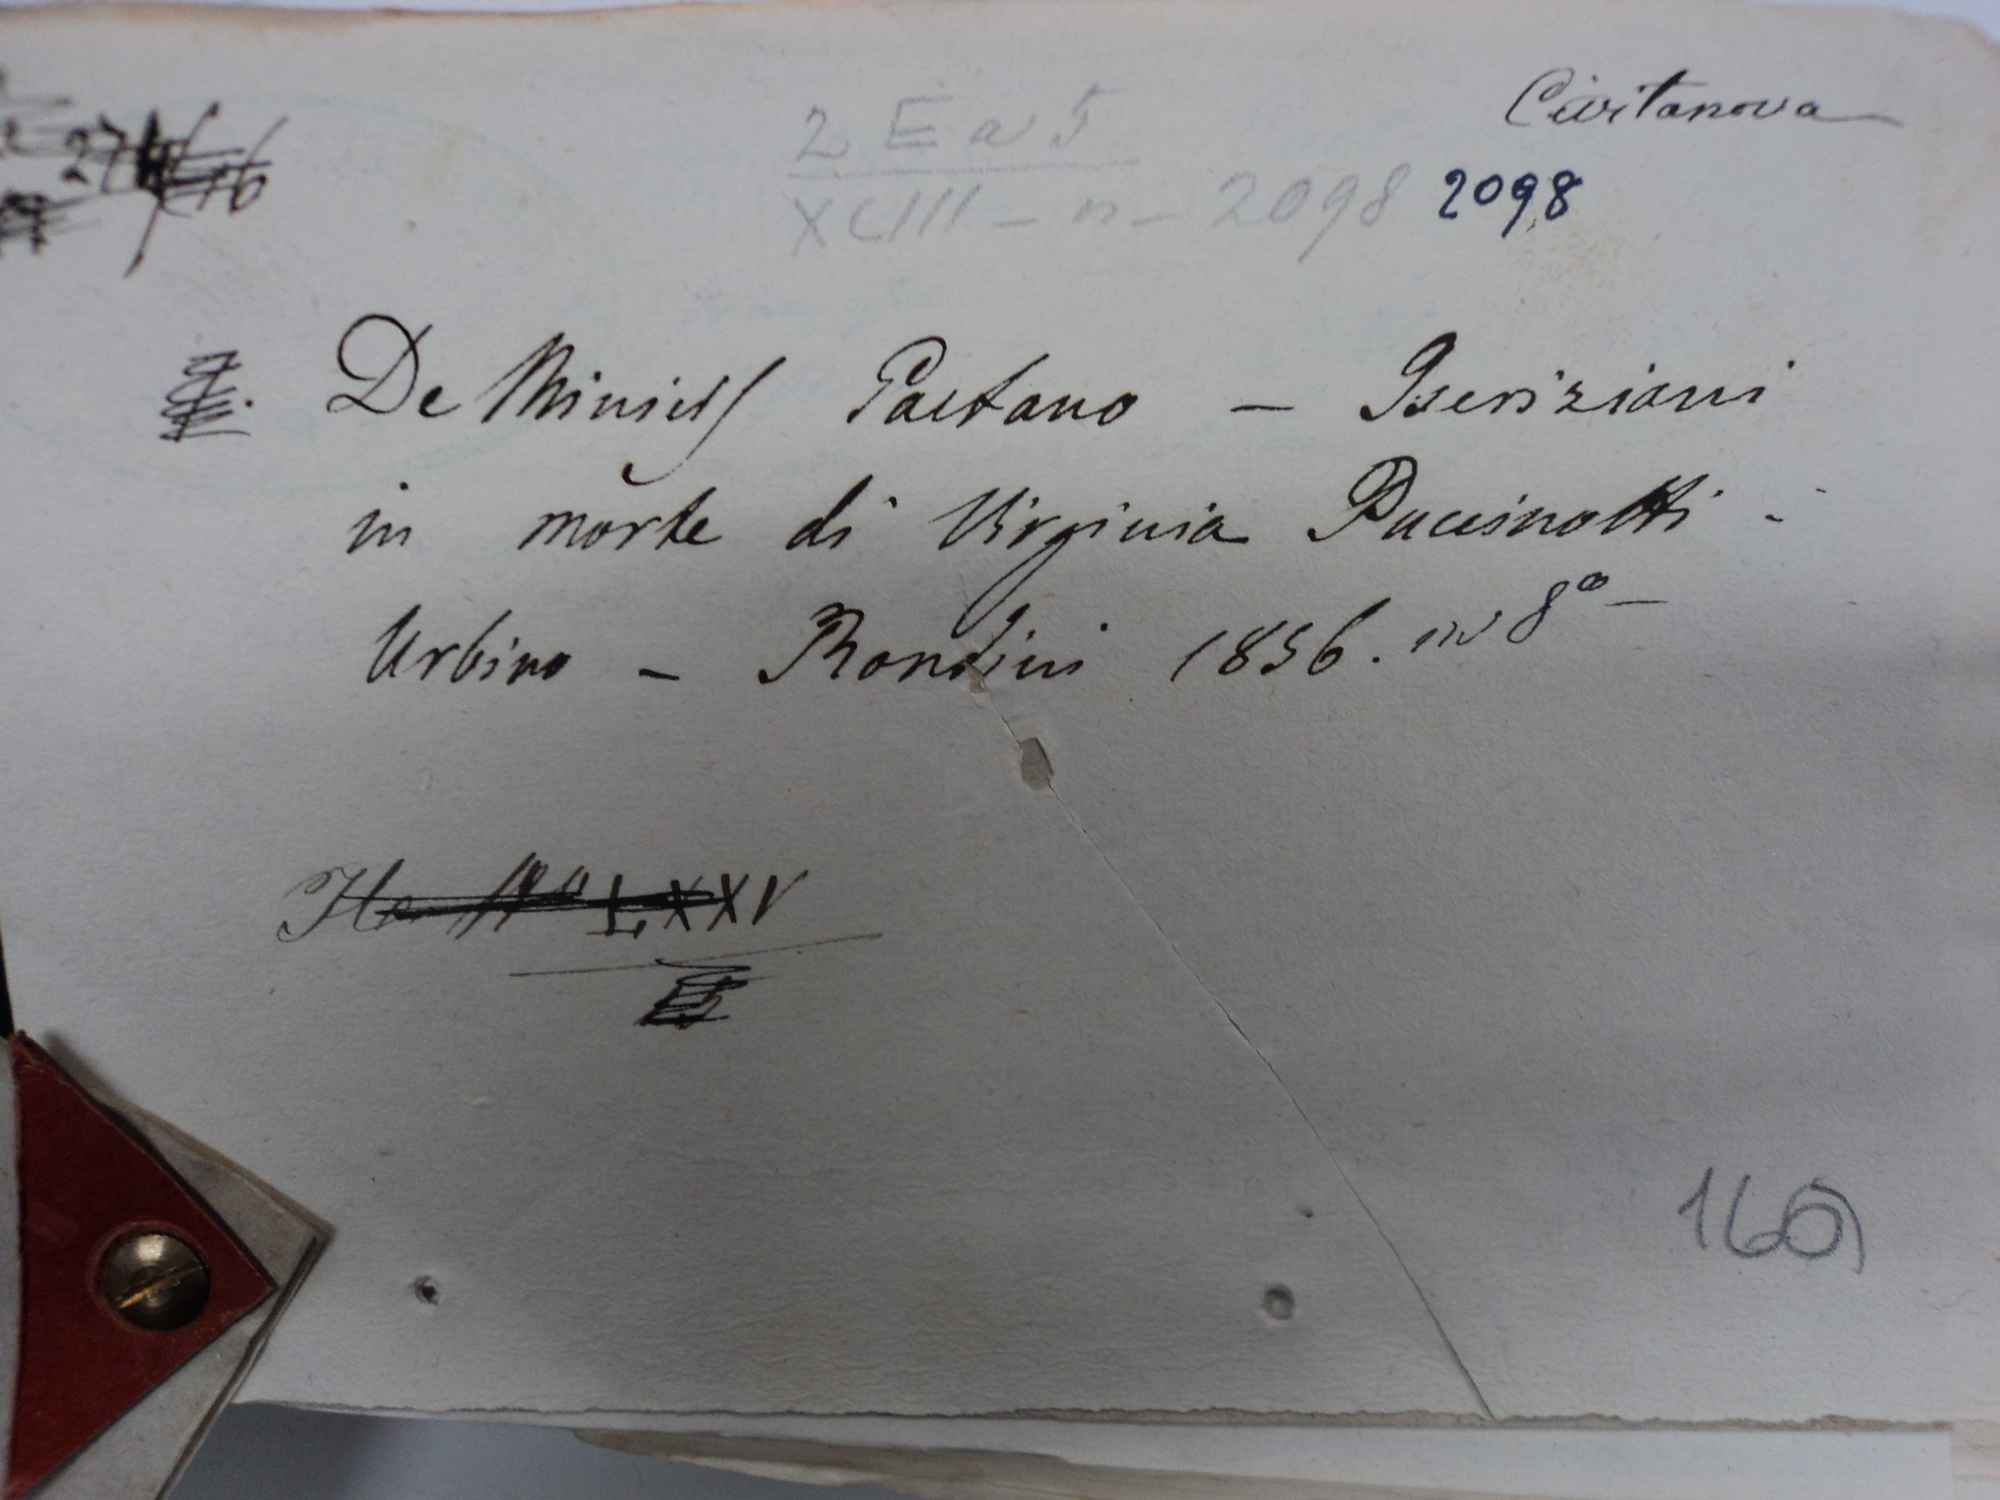 Civitanova
2 E a 5
XCIII - n - 2098 2098
De Minicis Gaetano - Iscrizioni
in morte di Virginia Puccinotti -
Urbino - Rondini 1856. in 8° -
LXXV
160